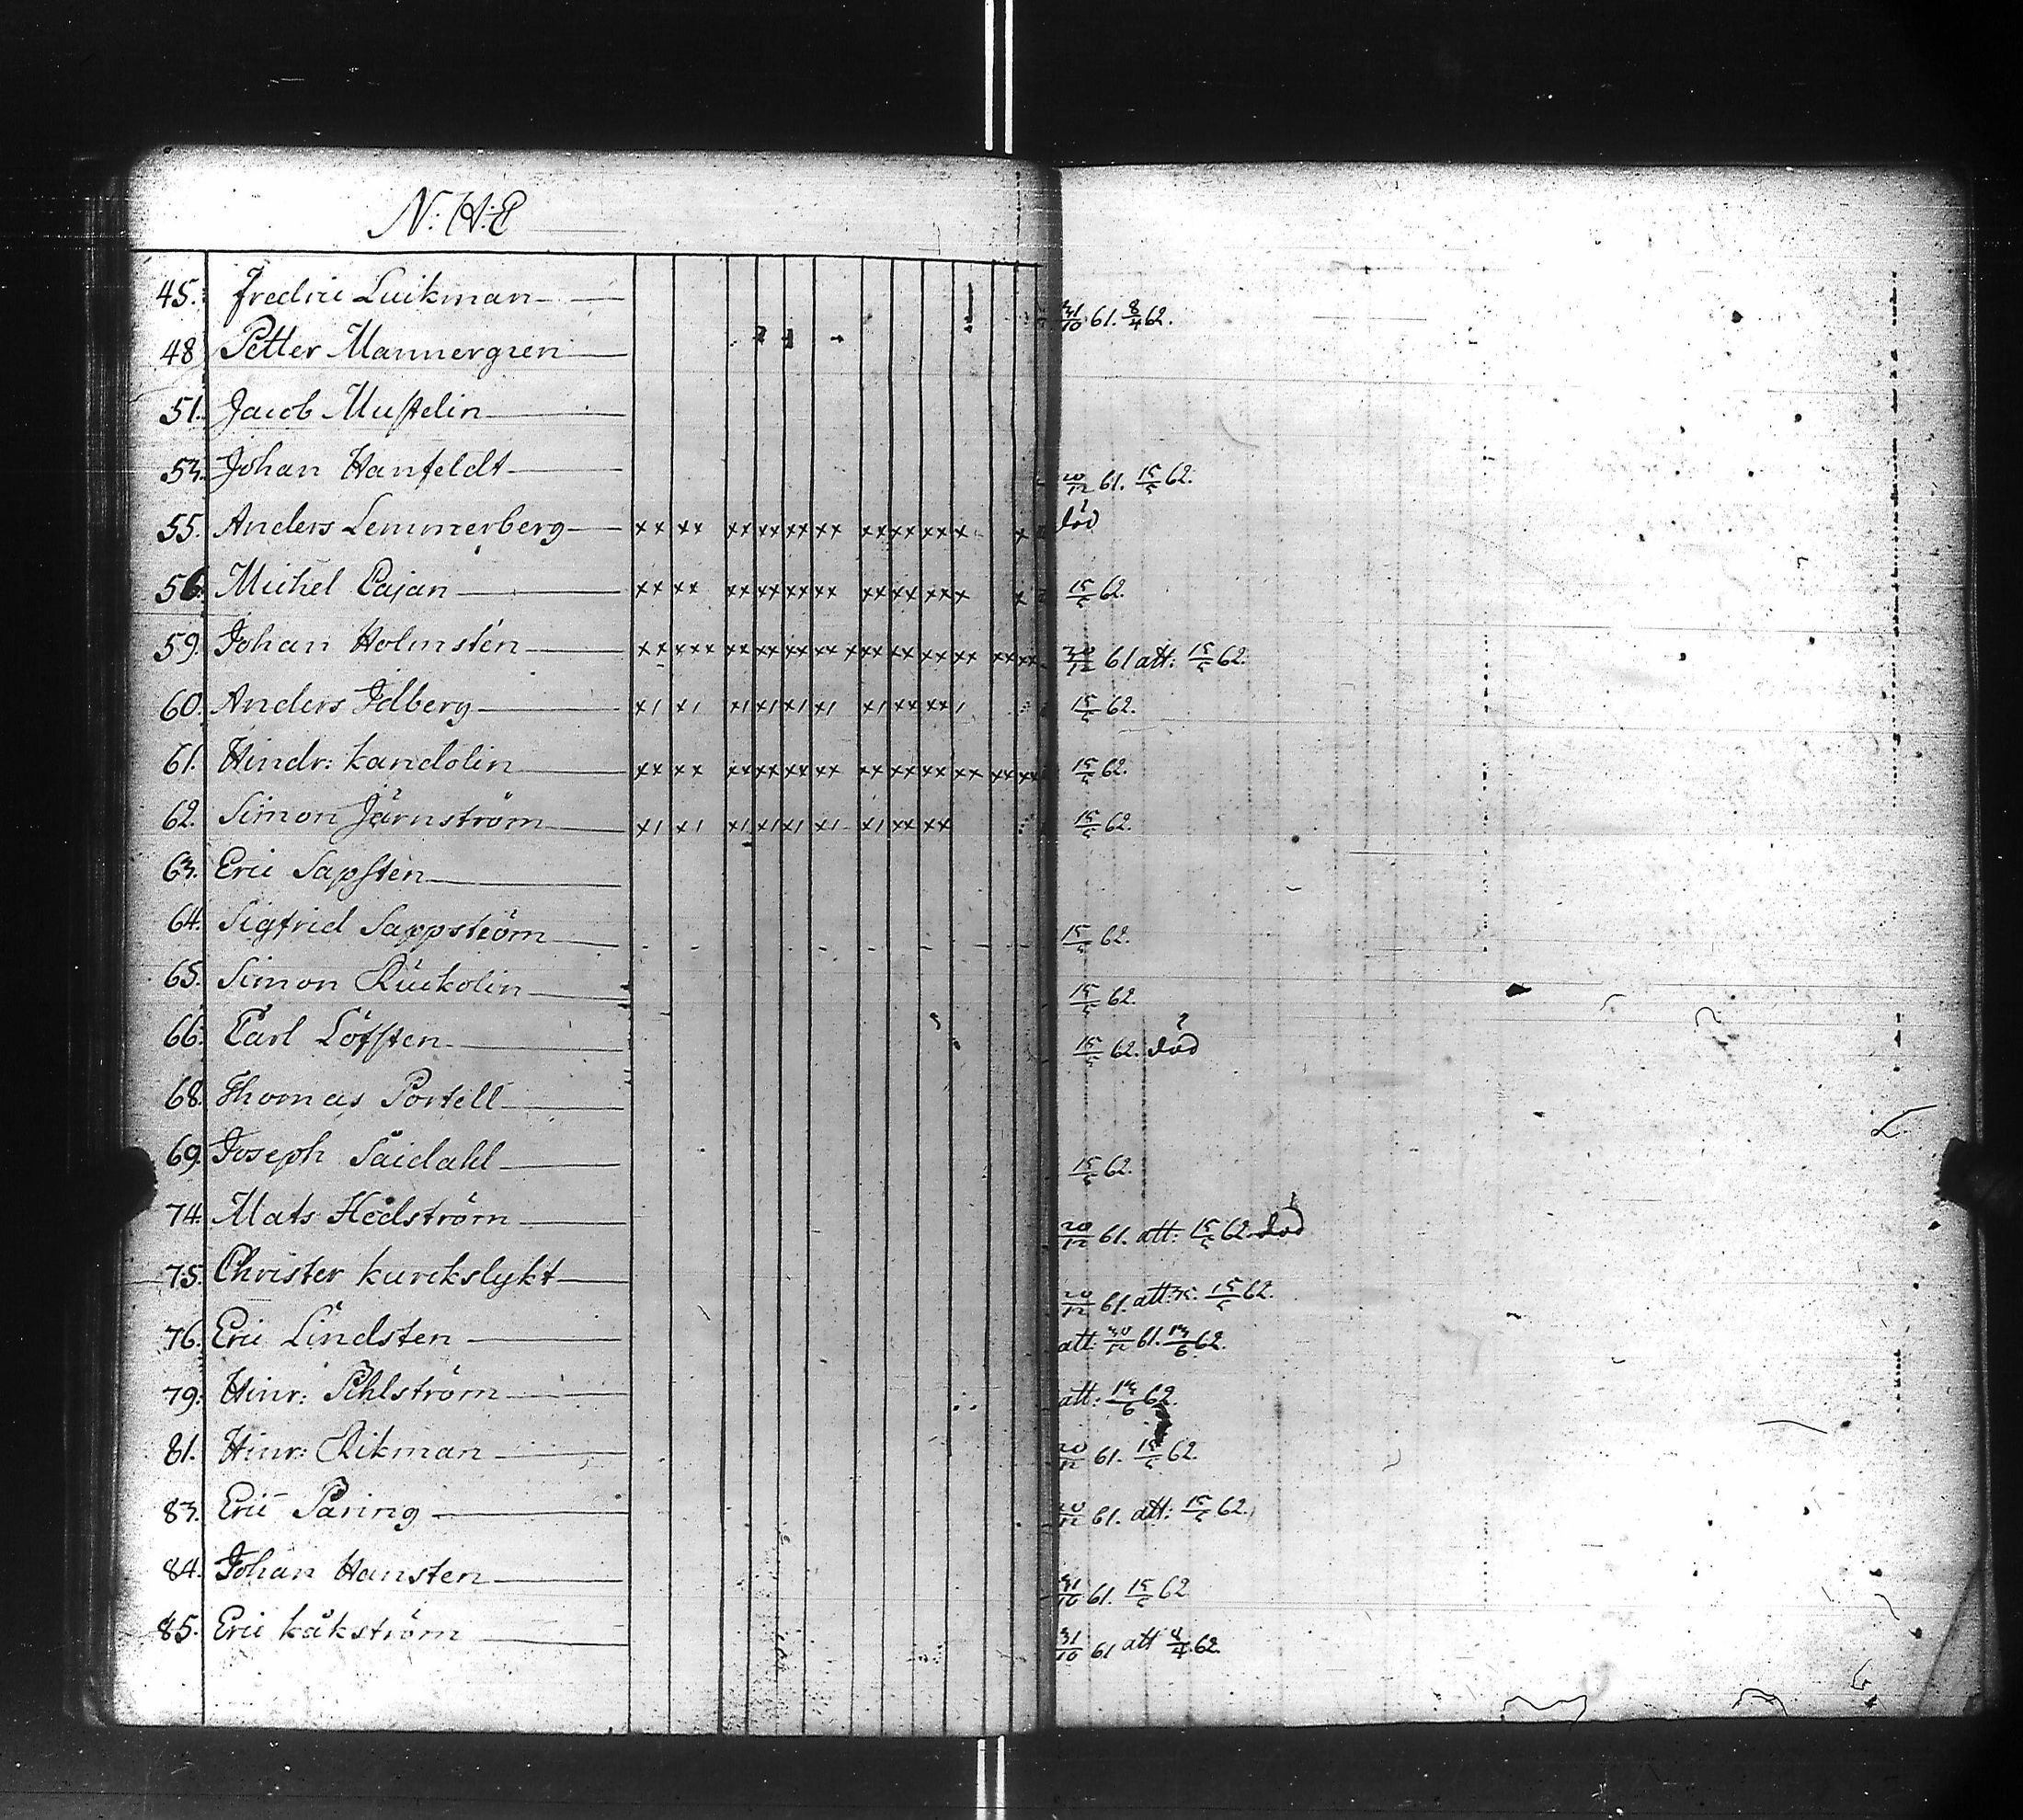 N: H: C
45. Fredric Luikman 31/10 61. 8/4 62.
48 Petter Mannergren
51. Jacob Mustelin
53. Johan Hanfeldt 20/12 61. 15/5 62.
55. Anders Lemmerberg xx xx xx xx xx xx xx xx xx x x död
56. Michel Cajan xx xx xx xx xx xx xx xx xx x x 15/5 62.
59. Johan Holmsten xx xxx xx xx xx xx xxx xx xx xx xx xx 20/12 61 att: 15/5 62.
60. Anders Idberg x1 x1 x1 x1 x1 x1 x1 xx xx 1 15/5 62.
61. Hindr: kandolin xx xx xx xx xx xx xx xx xx xx xx xx 15/5 62.
62. Simon Järnström x1 x1 x1 x1 x1 x1 x1 xx xx 15/5 62.
63. Eric Sapsten
64. Sigfrid Sappström 15/5 62.
65. Simon Ruckolin 15/5 62.
66. Carl Löfsten 15/5 62. död
68. Thomas Portell
69. Joseph Saidahl 15/5 62.
74. Mats Hedström 20/12 61. att: 15/5 62. död
75. Christer kurckslykt 20/12 61. att: 15/5 62.
76. Eric Lindsten att: 20/12 61. 13/6 62.
79. Hinr: Pihlström att: 13/6 62.
81. Hinr: Rikman 20/12 61. 15/5 62.
83. Eric Paring 20/12 61. att: 15/5 62.
84. Johan Hansten 31/10 61. 15/5 62
85. Eric kåkström 31/10 61 att 8/4 62.